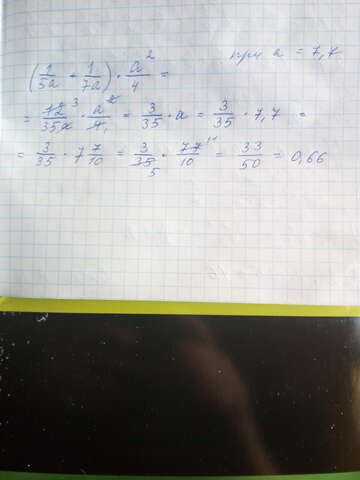 (1/5a + 1/7a) · a²/4 = при a = 7,7
= 12³/35a · a²/4₁ = 3/35 · a = 3/35 · 7,7 =
= 3/35 · 7 7/10 = 3/35₅ · 77¹¹/10 = 33/50 = 0,66